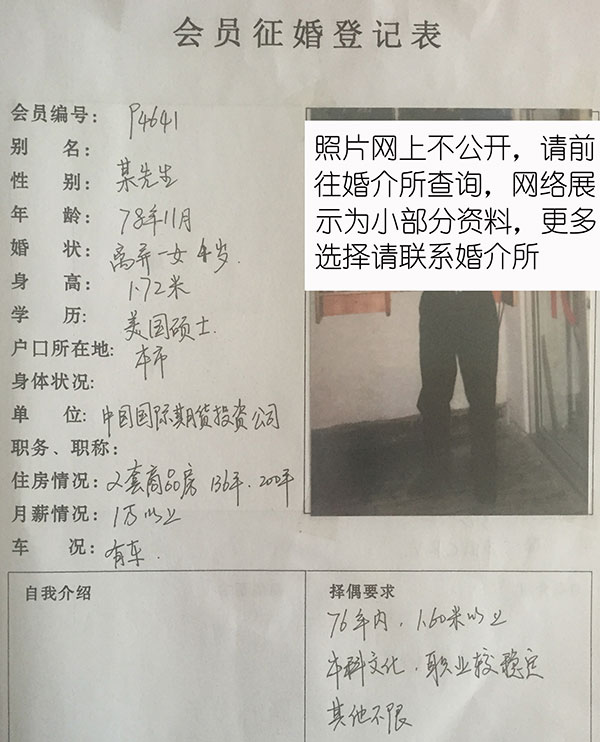 会员征婚登记表
会员编号: P4641
别 名:
性 别: 某先生
年 龄: 78年11月
婚 状: 离异一女4岁.
身 高: 1.72米
学 历: 美国硕士.
户口所在地: 本市
身体状况:
单 位: 中国国际期货投资公司
职务、职称:
住房情况: 2套商品房 136平. 200平
月薪情况: 1万以上
车 况: 有车.
照片网上不公开，请前
往婚介所查询，网络展
示为小部分资料，更多
选择请联系婚介所
自我介绍
择偶要求
76年内. 1.60米以上
本科文化. 职业较稳定
其他不限